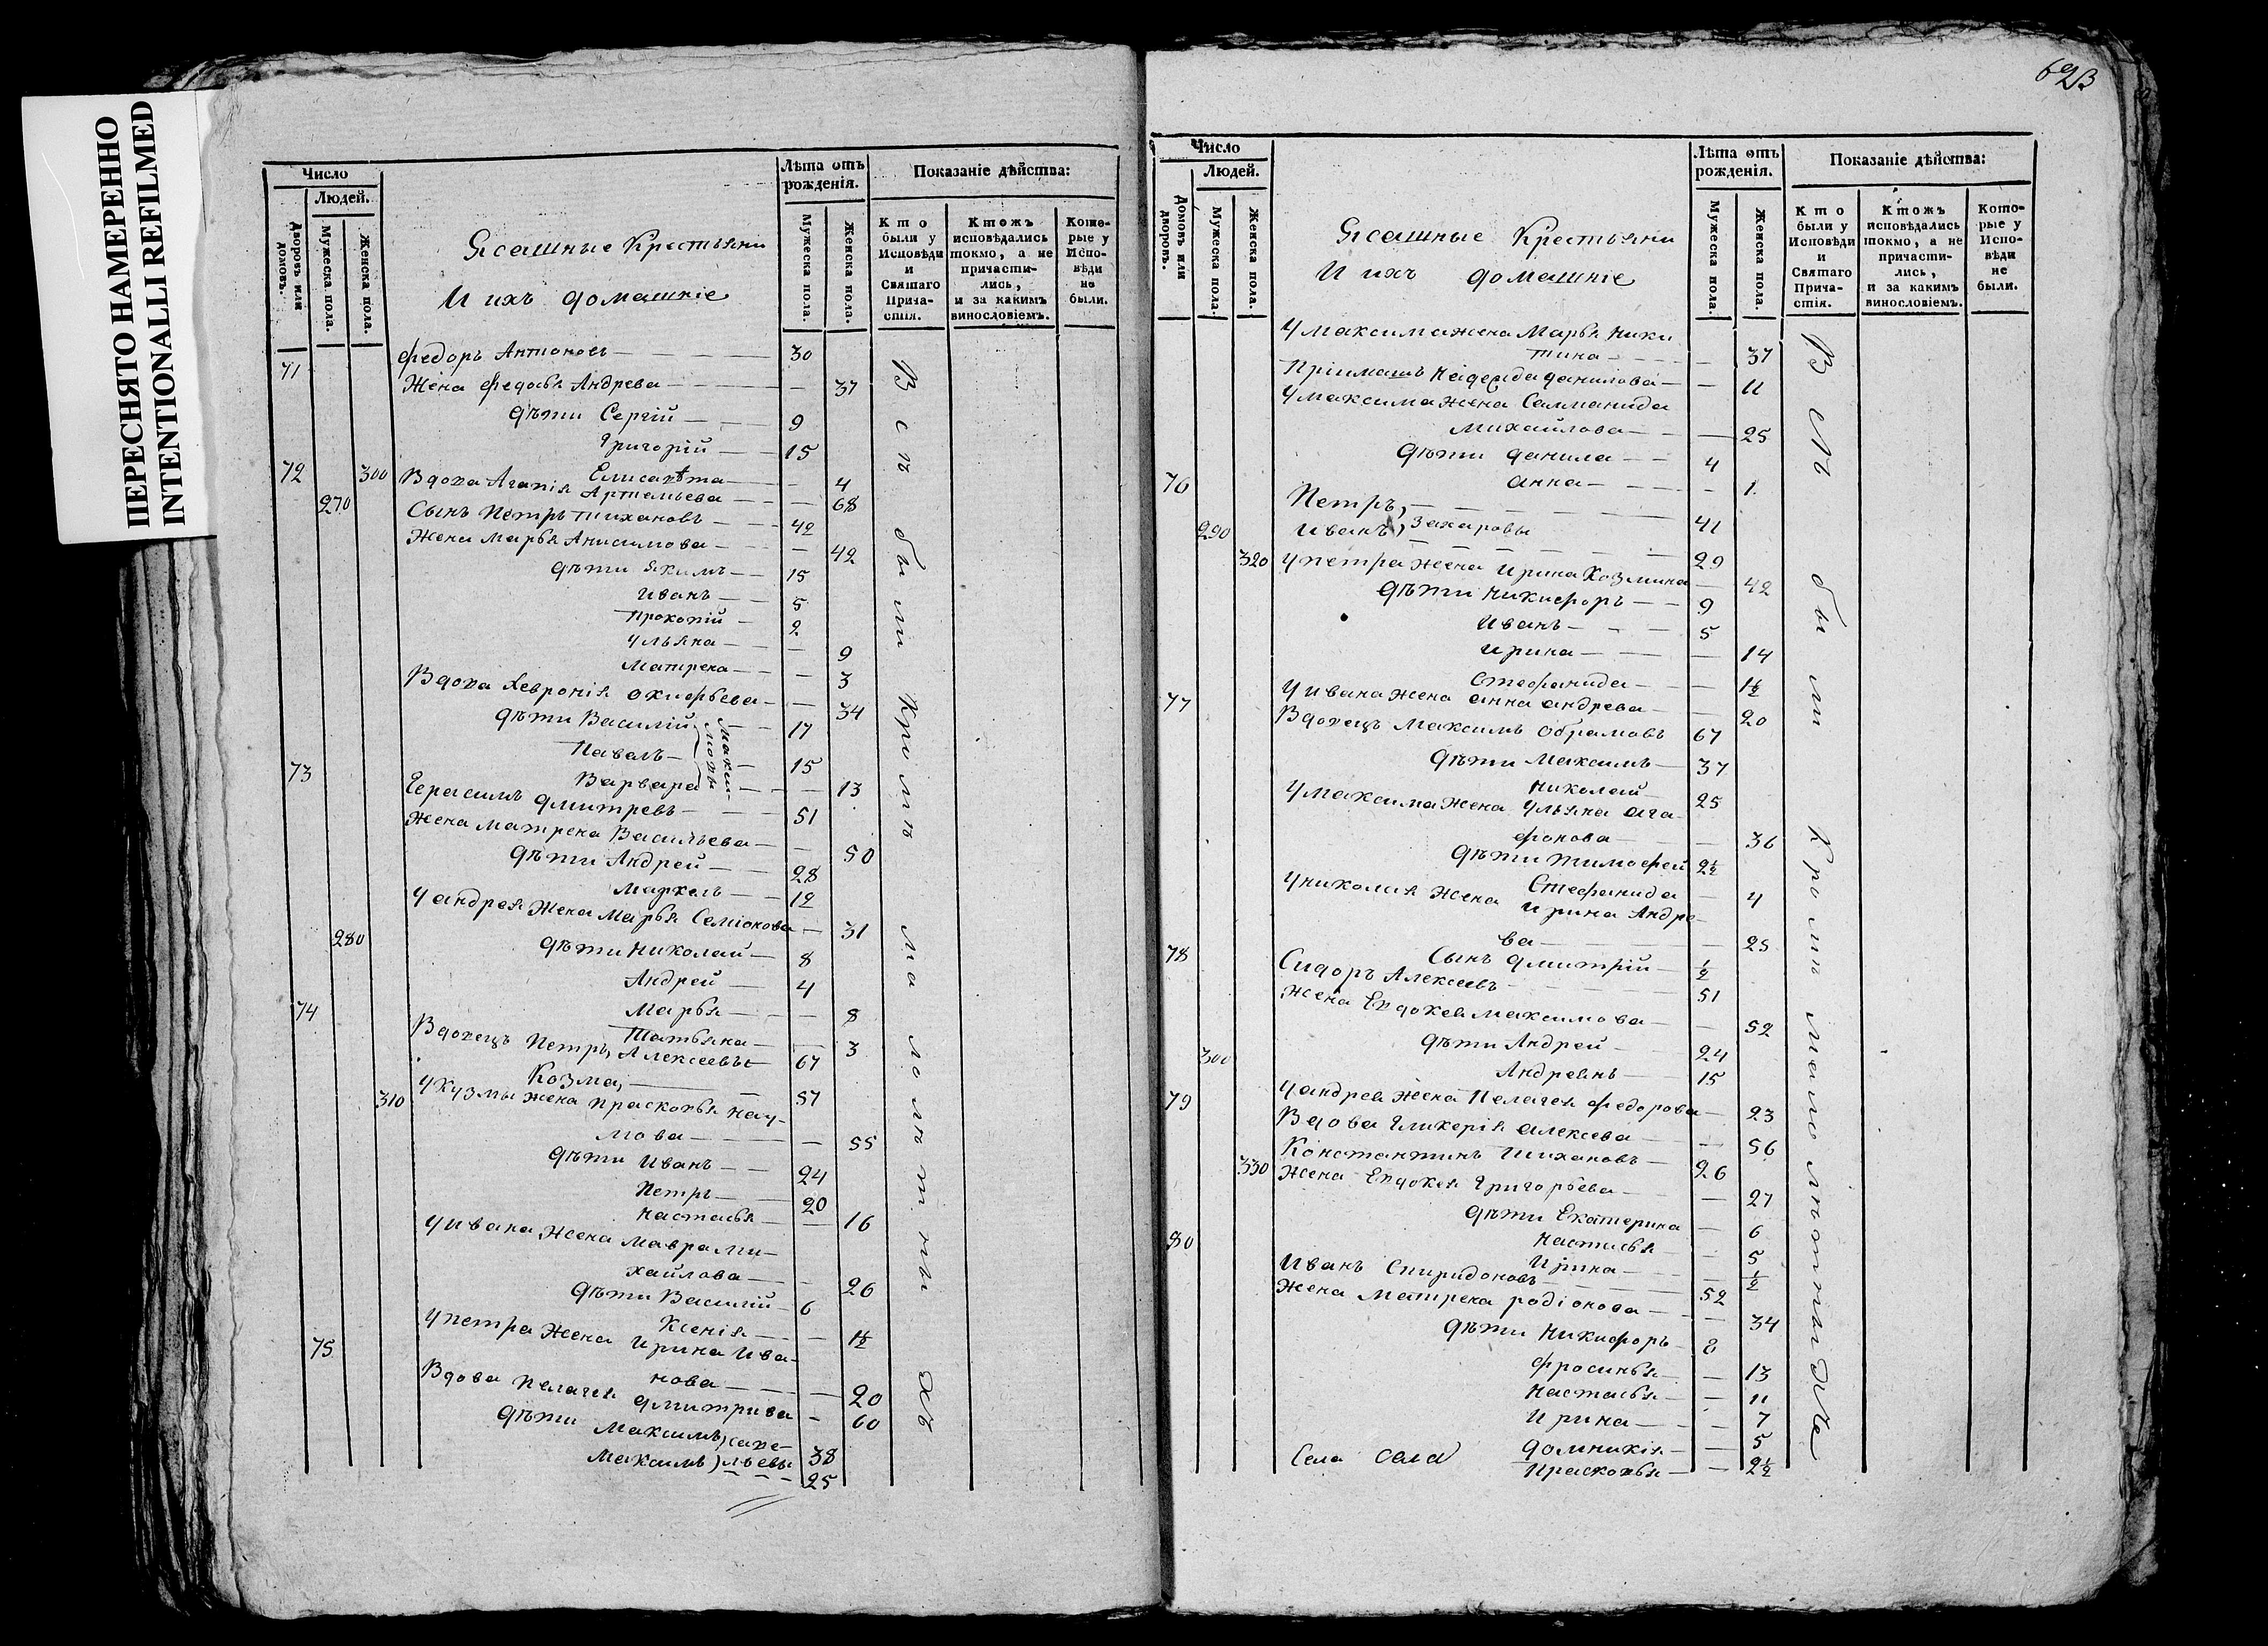 ПЕРЕСНЯТО НАМЕРЕННО
INTENTIONALLI REFILMED
Число
Людей.
Дворовъ или домовъ.
Мужеска пола.
Женска пола.
Ясашные Крестьяни
И ихъ домашніе
Лѣта отъ рожденія.
Мужеска пола.
Женска пола.
Показаніе дѣйства:
Кто были у Исповѣди и Святаго Причастія.
Ктожъ исповѣдались токмо, а не причастились, и за какимъ винословіемъ.
Которые у Исповѣди не были.
71 Федоръ Антоновъ 30
Жена Федосья Андрева 37
дѣти Сергій 9
Григорій 15
Елисавѣта 4
72 300 Вдова Агапія Артемьева 68
270 Сынъ Петръ Тихановъ 42
Жена Марья Анисимова 42
дѣти Якимъ 15
Иванъ 5
Прокопій 2
Ульяна 9
Матрена 3
Вдова Хевронія Окифьева 34
дѣти Василій 17
Павелъ 15
Варвара 13
Максимовы
73 Герасимъ Дмитревъ 51
Жена Матрена Васильева 50
дѣти Андрей 28
Маркелъ 12
У андрея Жена Марья Семіонова 31
280 дѣти Николай 8
Андрей 4
Марья 8
Татьяна 3
74 Вдовецъ Петръ, Алексеевы 67
Козма, 57
310 У Кузмы Жена Прасковья Нау-
мова 55
дѣти Иванъ 24
Петръ 20
Настасья 16
У ивана Жена Мавра Ми-
хайлова 26
дѣти Василій 6
Ксенія 1½
У петра Жена Ирина Ива-
нова 20
75 Вдова Пелагея Дмитрива 60
дѣти Максимъ, Саве- 38
Максимъ, льевы 25
Всѣ были Кромѣ малолѣтныхъ
623
Число
Людей.
Домовъ или дворовъ.
Мужеска пола.
Женска пола.
Ясашные Крестьяни
И ихъ домашніе
Лѣта отъ рожденія.
Мужеска пола.
Женска пола.
Показаніе дѣйства:
Кто были у Исповѣди и Святаго Причастія.
Ктожъ исповѣдались токмо, а не причастились, и за какимъ винословіемъ.
Которые у Исповѣди не были.
У максима жена Марья Ники
тина 37
Пріимашъ Надежда данилова 11
У максима Жена Саламанида
Михайлова 25
дѣти данила 4
анна 1
76 Петръ, 41
290 Иванъ, Захаровы 29
320 У петра Жена Ирина Козмина 42
дѣти Никифоръ 9
Иванъ 5
Ирина 14
Стефанида 1½
У ивана Жена анна андрева 20
77 Вдовецъ Максимъ Обрамовъ 67
дѣти Максимъ 37
Николай 25
У максима Жена Ульяна Ага-
фонова 36
дѣти Тимофей 2½
Стефанида 4
У николая Жена Ирина Андре-
ва 25
Сынъ Дмитрій ½
78 Сидоръ Алексеевъ 51
Жена Евдокея Максимова 52
300 дѣти Андрей 24
Андреянъ 15
У андрея Жена Пелагея Федорова 23
79 Вдова Гликерія алексева 56
Константинъ Тихановъ 26
330 Жена Евдокея Григорьева 27
дѣти Екатерина 6
Настасья 5
Ирина ½
80 Иванъ Спиридоновъ 52
Жена Матрена родіонова 34
дѣти Никифоръ 8
Фросинья 13
Настасья 11
Ирина 7
Домникія 5
Прасковья 2½
Села Села
Всѣ были Кромѣ малолѣтныхъ